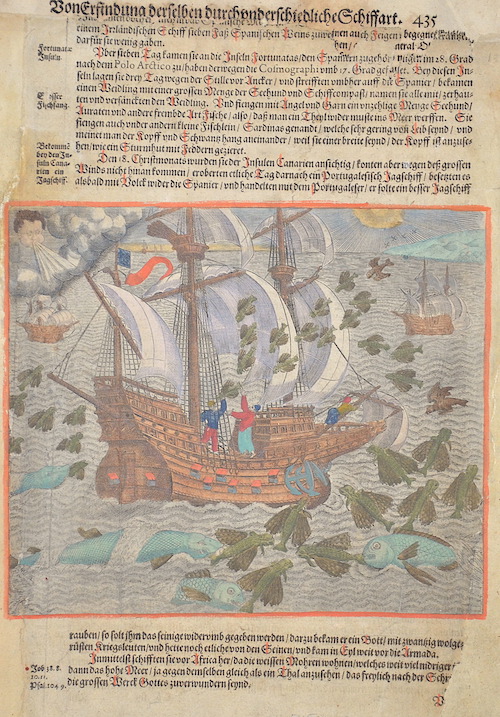 Von Erfindung derselben durch vnderschiedliche Schiffart. 435
einem Irländischen Schiff sieben Faß Spanischen Weins
darfür sie wenig gaben.
Fortunatae
Insuln.
Vber sieben Tag kamen sie an die Inseln Fortunatas/ den Spaniern
nach dem Polo Arctico zu/ haben derwegen die Cosmographi vmb 17. Grad gefählet. Bey diesen In-
seln lagen sie drey Tag wegen der Stille vor Ancker/ vnd streifften vmbher auff die Spanier/ bekamen
einen Weidling mit einer grossen Menge der Seehund vnd Schiffcompaß/ namen sie alle mit/ zerhau-
Fischfang.
ten vnd versänckten den Weidling. Vnd fiengen mit Angel vnd Garn ein vnzehlige Menge Seehund/
Auraten vnd andere frembde Art Fische/ also/ daß man ein Theyl wider muste ins Meer werffen. Sie
fiengen auch vnder andern kleine Fischlein/ Sardinas genandt/ welche sehr gering von Leib seynd/ vnd
meinet man der Kopff vnd Schwantz hang aneinander/ weil sie einer breite seynd/ der Kopff ist anzuse-
hen/ wie ein Sturmhut mit Fiedern gezieret.
Bekommē
bey den In-
suln Cana-
rien ein
Jagschiff.
Den 18. Christmonats wurden sie der Insulen Canarien ansichtig/ konten aber wegen deß grossen
Winds nicht hinan kommen/ eroberten etliche Tag darnach ein Portugalesisch Jagschiff/ besetzten es
alsbald mit Volck wider die Spanier/ vnd handelten mit dem Portugaleser/ er solte ein besser Jagschiff
rauben/ so solt ihm das seinige widerumb gegeben werden/ darzu bekam er ein Bott/ mit zwantzig wolge-
rüsten Kriegsleuten/ vnd hette noch etliche von den Seinen/ vnd kam in Eyl weit vor die Armada.
Inmittelst schifften sie vor Africa her/ da die weissen Mohren wohnen/ welches weit viel nidriger/
* Job 38. 8.
10. 11.
Psal. 104 9.
dann das hohe Meer/ ja gegen demselben gleich als ein Thal anzusehen/ das freylich nach der Schr
die grossen Werck Gottes zuverwundern seynd.